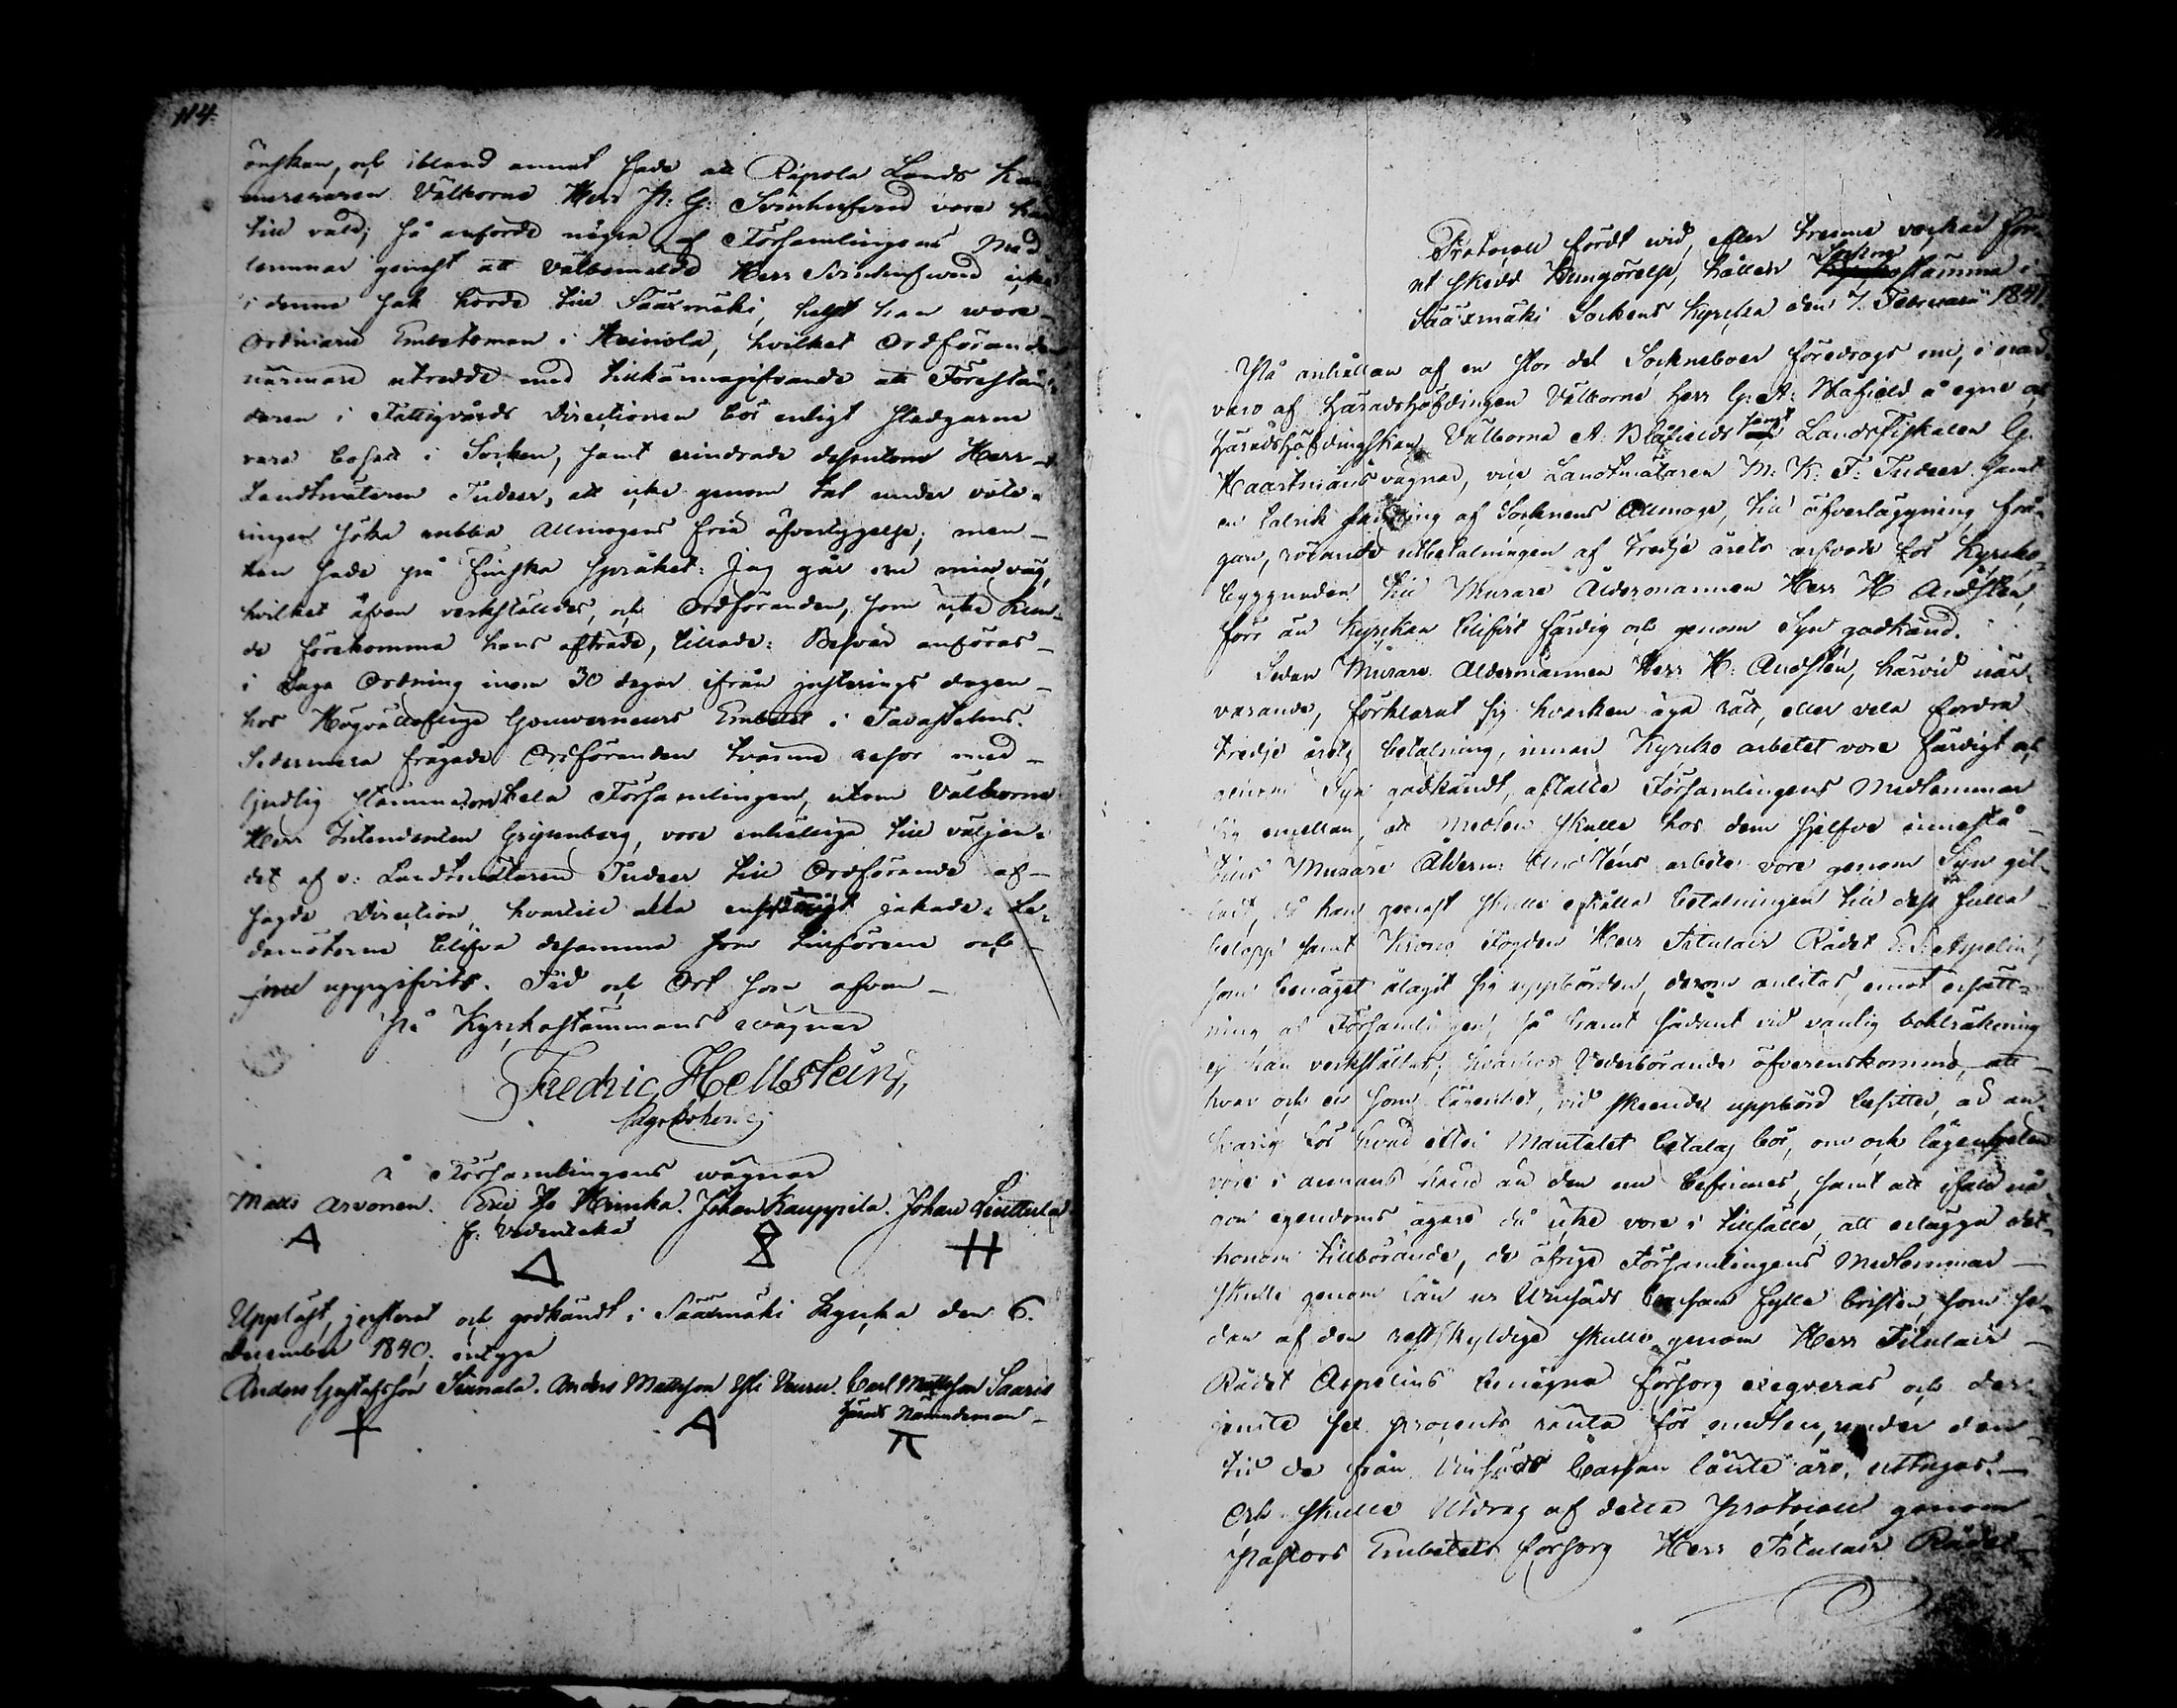 114.
önskan, och ibland annat sade att Rapola Lands Ka
mereraren Välborne Herr P: G: Svinhufvud vore han
till väld; så anförde några af Församlingens Med
lemmar genast att Välbemälde Herr Svinhufvud icke
i denna sak hörde till Sääxmäki, helst han wore
Ordinarie Embetsman i Heinola, hvilket Ordföranden
närmare utredde med tillkännagifvande att Förestån-
daren i Fattigvårds Directionen bör enligt stadgarne
vara bosatt i Socken, samt erindrade dessutom Herr
Landtmätaren Tudeer, att icke genom tal under vote-
ringen söka rubba Allmogens fria öfvertygelse; men
han sade på Finska språket: Jag går min väg,
hvilket äfven verkställdes, och Ordföranden, som icke kun-
de förekomma hans afträde, tillade: Besvär anföras
i Laga Ordning inom 30 dagar ifrån justerings dagen
hos Högvällofliga Gouverneurs Embetet i Tavastehus.
Sedermera frågade Ordföranden tvänne resor med
ljudlig stämma om hela Församlingen, utom Välborne
Herr Intendenten Gripenberg, vore enhällige till väljan-
det af v: Landtmätaren Tudeer till Ordförande af
sagde Direction, hvartill alla jakade. Le-
damöterne blifva desamma som tillförene och
uppgifvits. Tid och Ort som ofvan
På Kyrkostämmans vägnar
Fredric Hellsteln,
Kyrkoherde
å Församlingens wägnar
Matts Arvonen. Eric Hinnka. Johan Kauppila. Johan Linttula
f: Vedentaka
A
H
Uppläst, justerat och godkändt i Sääxmäki Kyrka den 6.
December 1840; intyga
Anders Gustafsson Seunala. Anders Mattsson Yli Uuru. Carl Mattsson Saaris
Härads Nämndeman
A
Protocoll fördt wid, efter trenne veckor för-
ut skedd kungörelse, hållen Sockne stämma i
Sääxmäki Sockens Kyrka den 7. Februarii 1841.
På anhållan af en stor del Sockneboer föredrogs nu, i när-
varo af Häradshöfdingen Välborne Herr G: A: Blåfield å egne och
Häradshöfdingskan Välborna A: Blåfields samt Landsfiskalen G.
Haartmans vägnar, vice Landtmätaren M: K: F: Tudeer samt
en talrik samling af Socknens Allmoge, till öfverläggning frå-
gan, rörande utbetalningen af tredje årets arfvode för Kyrko-
byggnaden till Murare Åldermannen Herr H Andstén,
förr än Kyrkan blifvit färdig och genom Syn godkänd.
Sedan Murare Åldermannen Herr H: Andstén, härvid när-
varande, förklarat sig hvarken äga rätt, eller vela fordra
tredje årets betalning, innan Kyrko arbetet vore färdigt och
genom Syn godkändt, aftalte Församlingens Medlemmar
sig emellan, att medlen skulle hos dem sjelfve innestå
tills Murare Alderm: Andsténs arbete vore genom Syn gil-
ladt, då han genast skulle erhålla betalningen till dess fulla
belopp samt Krono Fogden Herr Titulair Rådet E: J: Aspelin,
som benäget älagit sig uppbörden, derom anlitas, emot ersätt-
ning af Församlingen, så framt sådant vid vanlig boksräkning
ej kan verkställas; hvarhos Vederbörande öfverenskommo, att
hvar och en som lägenhet, vid skeende uppbörd besitter, är an-
svarig för hvad efter Mantalet betalas bör, om och lägenheten
vore i annans hand än den nu befinnes, samt att ifald nå-
gon egendoms ägare då icke vore i tillfälle, att erlägga det
honom tillhörande, de öfrige Församlingens Medlemmar
skulle genom lån ur Vinsäds Cassan fylla bristen, som se-
dan af den restskyldige skulle genom Herr Titulair
Rådet Aspelins benägna försorg exeqveras och der-
jemte sex procents ränta för medlen, under den
tid de från Vinsäds Cassan lånte äro, uttagas.
Och skulle Utdrag af detta Protocoll genom
Pastors Embetets försorg Herr Titulair Rådet